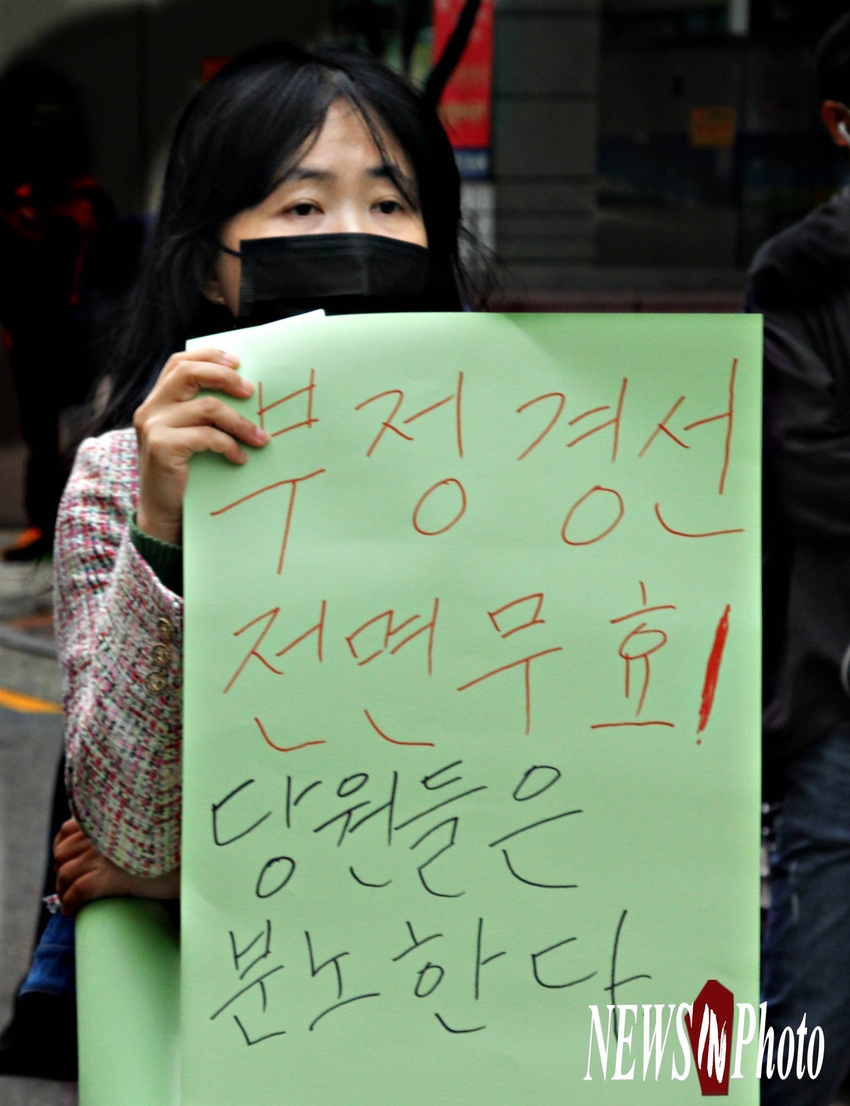 부정경선
전면무효!
당원들은
분노한다
NEWSIN Photo